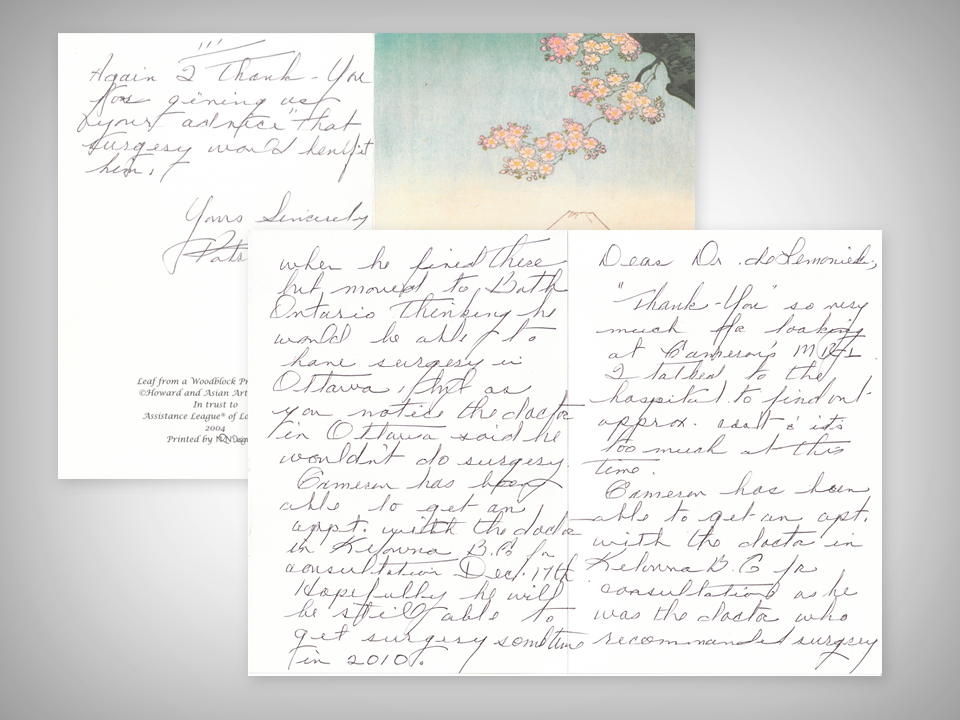 Dear Dr.
"Thank-You" so very
much for looking
at Cameron's MRI.
I talked to the
hospital to find out
approx. cost & it's
too much at this
time.
Cameron has been
able to get an apt.
with the doctor in
Kelowna B.C for
consultation as he
was the doctor who
recommended surgery
when he lived there
but moved to Bath
Ontario thinking he
would be able to
have surgery in
Ottawa, but as
you notice the doctor
in Ottawa said he
wouldn't do surgery.
Cameron has been
able to get an
appt. with the doctor
in Kelowna B.C for
consultation Dec. 17th
Hopefully he will
be still able to
get surgery sometime
in 2010.
Again I Thank-You
for giving us
your advice that
surgery would benefit
him.
Yours Sincerely
Pats
Leaf from a Woodblock Pr
©Howard and Asian Art
In trust to
Assistance League® of Lo
2004
Printed by